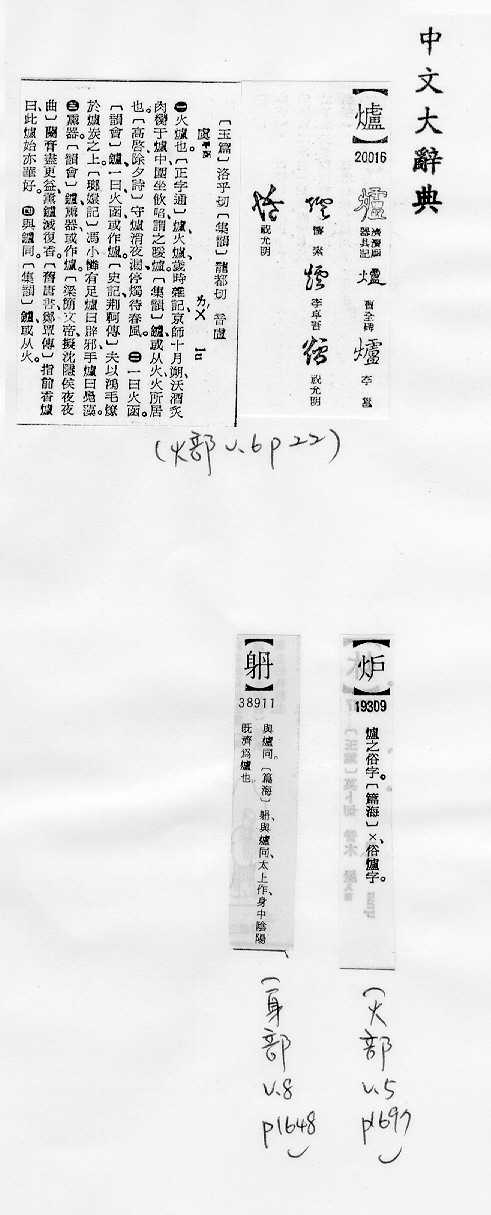 中文大辭典
【爐】
20016
濟瀆廟
器具記
曹全碑
李邕
懷素
李卓吾
祝允明
祝允明
〔玉篇〕洛乎切〔集韻〕龍都切 音盧
虞平聲
ㄌㄨˊ lu
㊀火爐也。〔正字通〕爐、火爐、歲時雜記、京師十月朔、沃酒炙
肉臠于爐中、圍坐飲啗、謂之煖爐。〔集韻〕鑪、或从火、火所居
也。〔高啓、除夕詩〕守爐消夜漏、停燭待春風。㊁一曰火函。
〔韻會〕鑪、一曰火函、或作爐。〔史記、荆軻傳〕夫以鴻毛燎
於爐炭之上。〔瑯嬛記〕馮小憐有足爐曰辟邪、手爐曰鳧藻。
㊂薰器。〔韻會〕鑪、薰器、或作爐。〔梁簡文帝、擬沈隱侯夜夜
曲〕蘭膏盡更益、薰鑪滅復香。〔舊唐書、鄭覃傳〕指前香爐
曰、此爐始亦華好。㊃與鑪同。〔集韻〕鑪、或从火。
(火部 v.6 p 22)
【炉】
19309
爐之俗字。〔篇海〕×、俗爐字。
(火部 v.5 p1697)
【䠷】
38911
與爐同。〔篇海〕、與爐同、太上作、身中陰陽
旣濟爲爐也。
(身部 v.8 p1648)